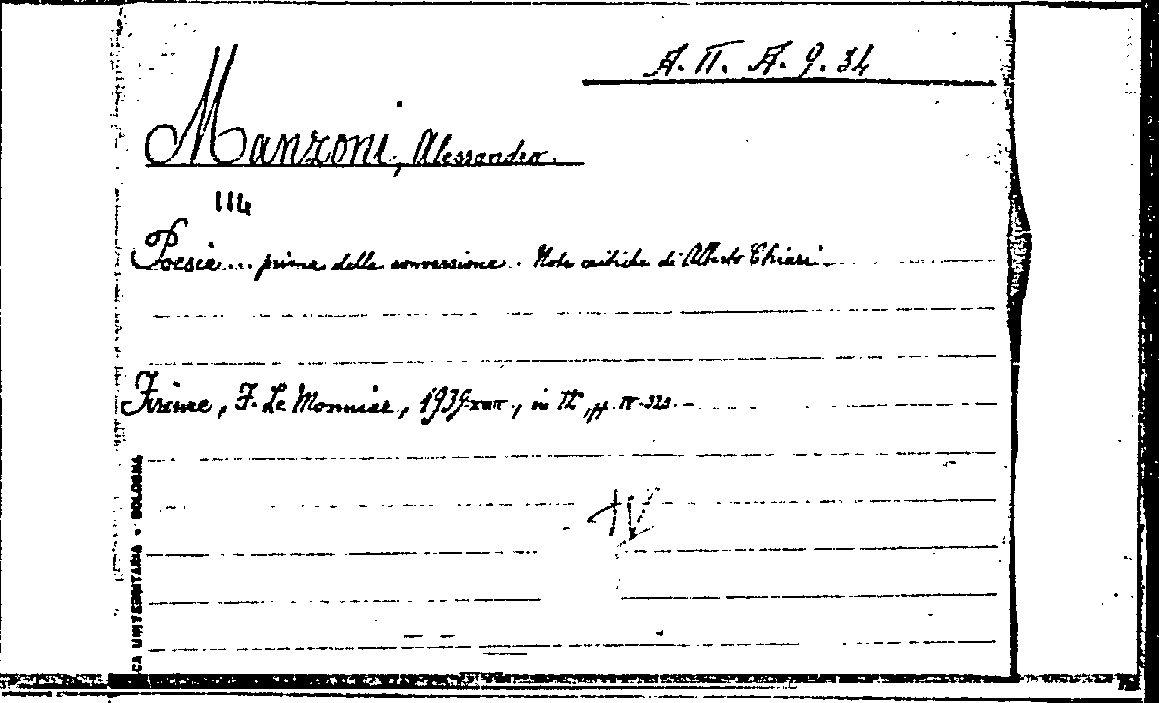 A. II. A. 9. 34
Manzoni, Alessandro.
114
Poesie... prima della conversione. Note critiche di Alberto Chiari.
Firenze, F. Le Monnier, 1939-XVII, in 16, pp.
CA UNIVERSITARIA - BOLOGNA